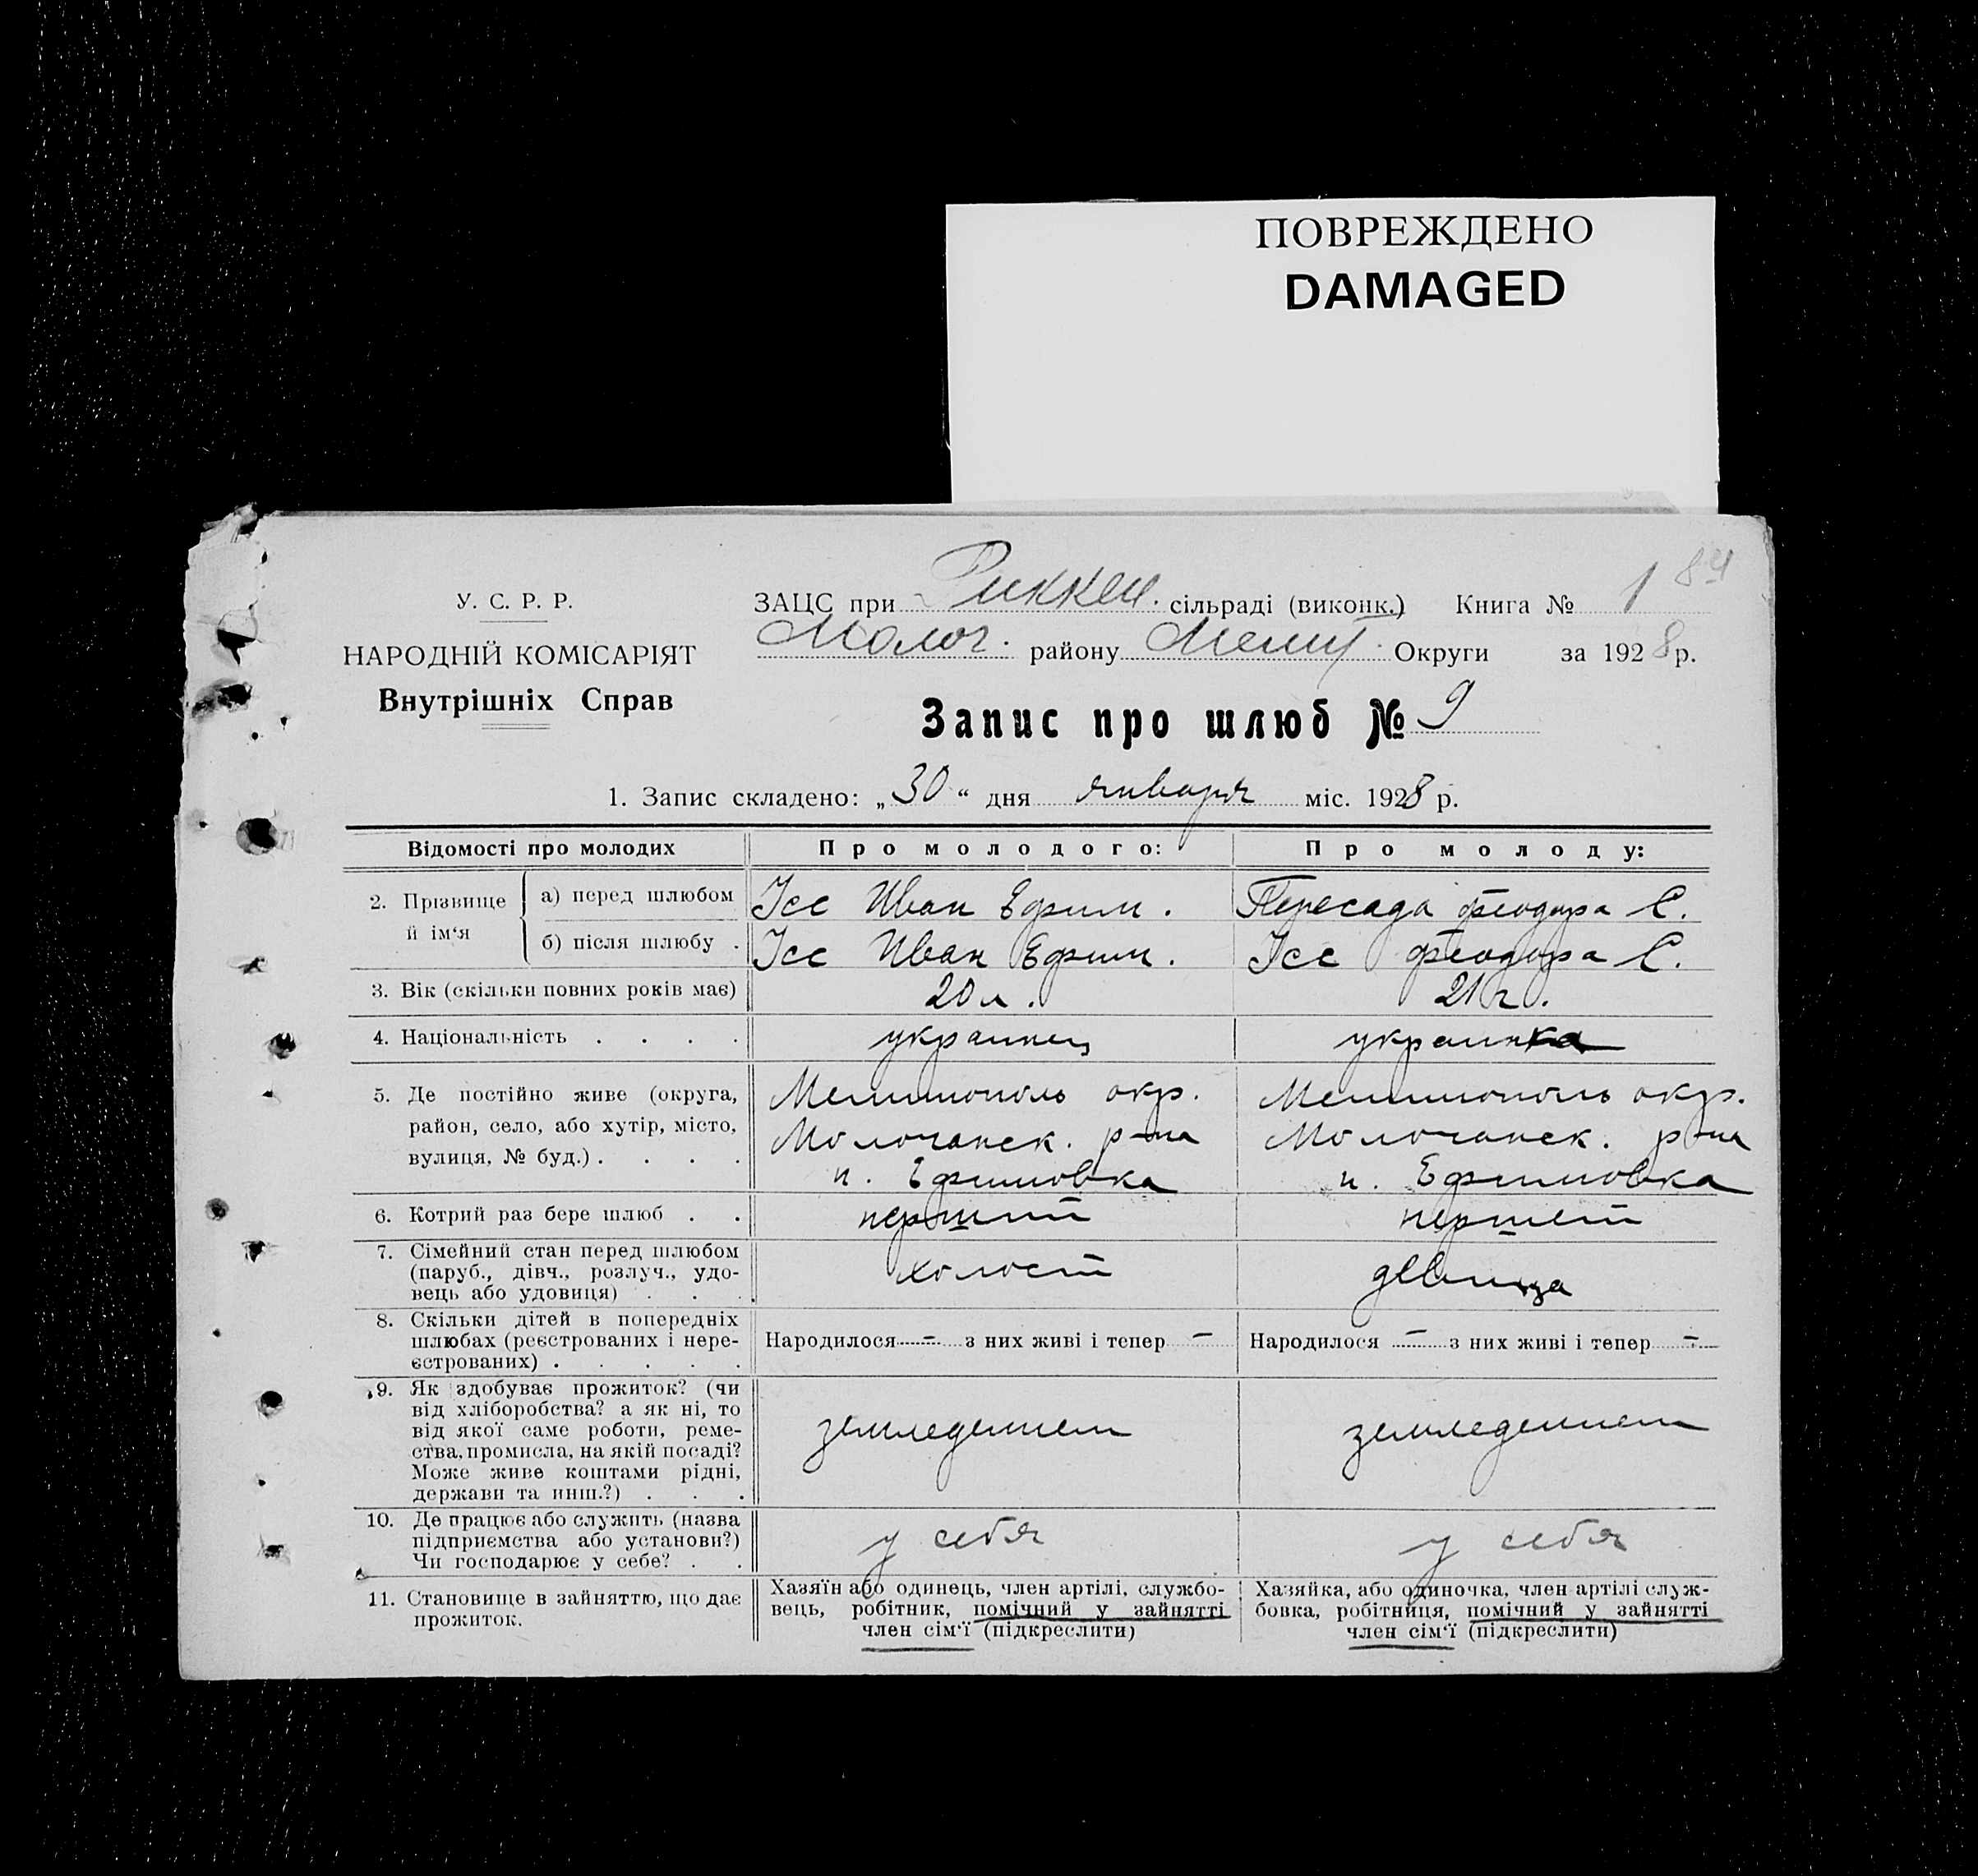 ПОВРЕЖДЕНО
DAMAGED
84
У. С. Р. Р.
НАРОДНІЙ КОМІСАРІЯТ
Внутрішніх Справ
ЗАЦС при Риккен. сільраді (виконк.) Книга № 1
Молоч. району Мелит. Округи за 1928 р.
Запис про шлюб № 9
1. Запис складено: „30“ дня января міс. 1928 р.
Відомості про молодих Про молодого: Про молоду:
2. Прізвище й ім‘я
а) перед шлюбом Ісс Иван Ефим. Пересада Феодора С.
б) після шлюбу . Ісс Иван Ефим. Ісс Феодора С.
3. Вік (скільки повних років має) 20 л. 21 г.
4. Національність . . . . украинец украинка
5. Де постійно живе (округа,
район, село, або хутір, місто,
вулиця, № буд.) . . . .
Мелитополь окр.
Молочанск. р-на
п. Ефимовка
Мелитополь окр.
Молочанск. р-на
п. Ефимовка
6. Котрий раз бере шлюб . . перший перший
7. Сімейний стан перед шлюбом
(паруб., дівч., розлуч., удо-
вець або удовиця) . . .
холост
девица
8. Скільки дітей в попередніх
шлюбах (реєстрованих і нере-
єстрованих) . . . . .
Народилося - з них живі і тепер -
Народилося - з них живі і тепер -
9. Як здобуває прожиток? (чи
від хліборобства? а як ні, то
від якої саме роботи, реме-
ства, промисла, на якій посаді?
Може живе коштами рідні,
держави та инш.?) . . .
земледелием
земледелием
10. Де працює або служить (назва
підприємства або установи?)
Чи господарює у себе? . .
у себя
у себя
11. Становище в зайняттю, що дає
прожиток.
Хазяїн або одинець, член артілі, службо-
вець, робітник, помічний у зайнятті
член сім‘ї (підкреслити)
Хазяйка, або одиночка, член артілі служ-
бовка, робітниця, помічний у зайнятті
член сім‘ї (підкреслити)